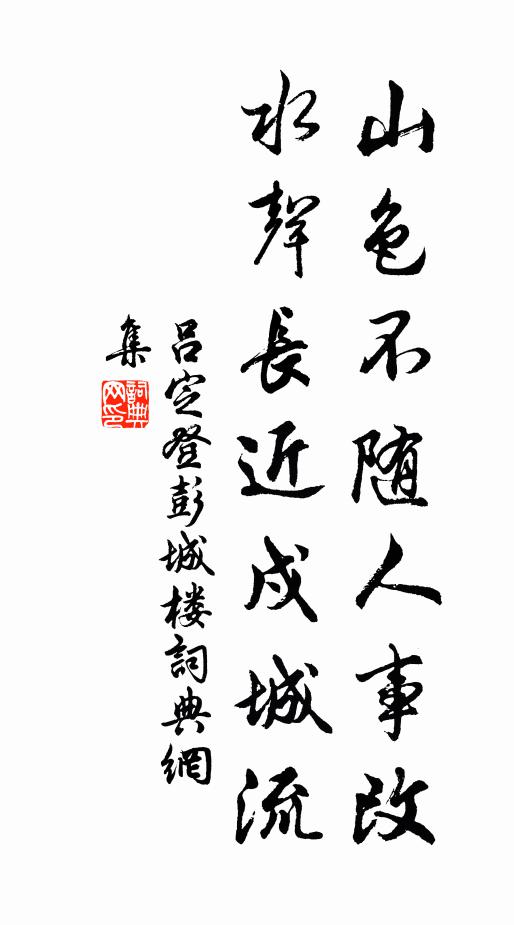 山色不随人事改
水聲長近戍城流
吕定登彭城楼詞典網
集
詞典
网印